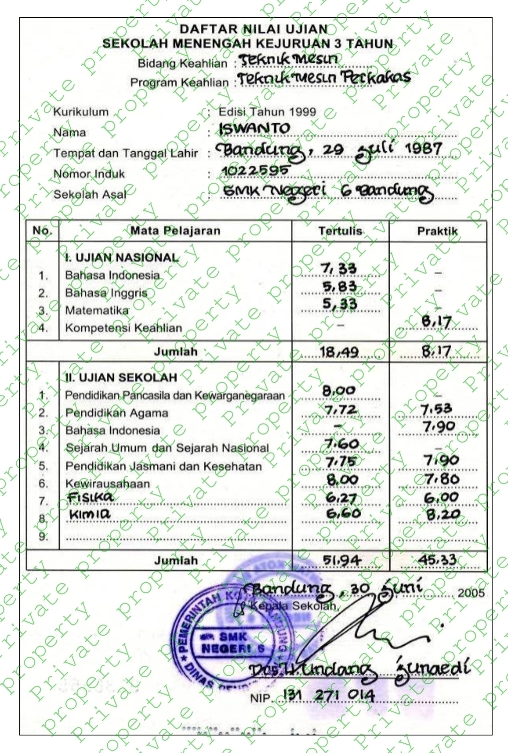 DAFTAR NILAI UJIAN
SEKOLAH MENENGAH KEJURUAN 3 TAHUN
Bidang Keahlian : Teknik Mesin
Program Keahlian : Teknik Mesin Perkakas
Kurikulum : Edisi Tahun 1999
Nama : ISWANTO
Tempat dan Tanggal Lahir : Bandung, 29 Juli 1987
Nomor Induk : 1022595
Sekolah Asal : SMK Negeri 6 Bandung
No. Mata Pelajaran Tertulis Praktik
I. UJIAN NASIONAL
1. Bahasa Indonesia 7,33 –
2. Bahasa Inggris 5,83 –
3. Matematika 5,33 –
4. Kompetensi Keahlian – 8,17
Jumlah 18,49 8,17
II. UJIAN SEKOLAH
1. Pendidikan Pancasila dan Kewarganegaraan 8,00 –
2. Pendidikan Agama 7,72 7,53
3. Bahasa Indonesia – 7,90
4. Sejarah Umum dan Sejarah Nasional 7,60 –
5. Pendidikan Jasmani dan Kesehatan 7,75 7,90
6. Kewirausahaan 8,00 7,80
7. Fisika 6,27 6,00
8. Kimia 6,60 8,20
9.
Jumlah 51,94 45,33
Bandung, 30 Juni 2005
Kepala Sekolah,
PEMERINTAH KOTA BANDUNG
SMK
NEGERI 6
DINAS PENDIDIKAN
Drs. H. Undang Junaedi
NIP. 131 271 014
Private property